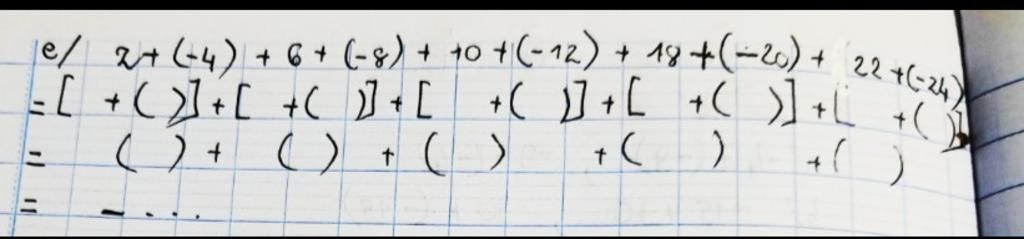 e/ 2 + (-4) + 6 + (-8) + 10 + (-12) + 18 + (-20) + 22 + (-24)
= [ + ( )] + [ + ( )] + [ + ( )] + [ + ( )] + [ + ( )]
= ( ) + ( ) + ( ) + ( ) + ( )
= - ...